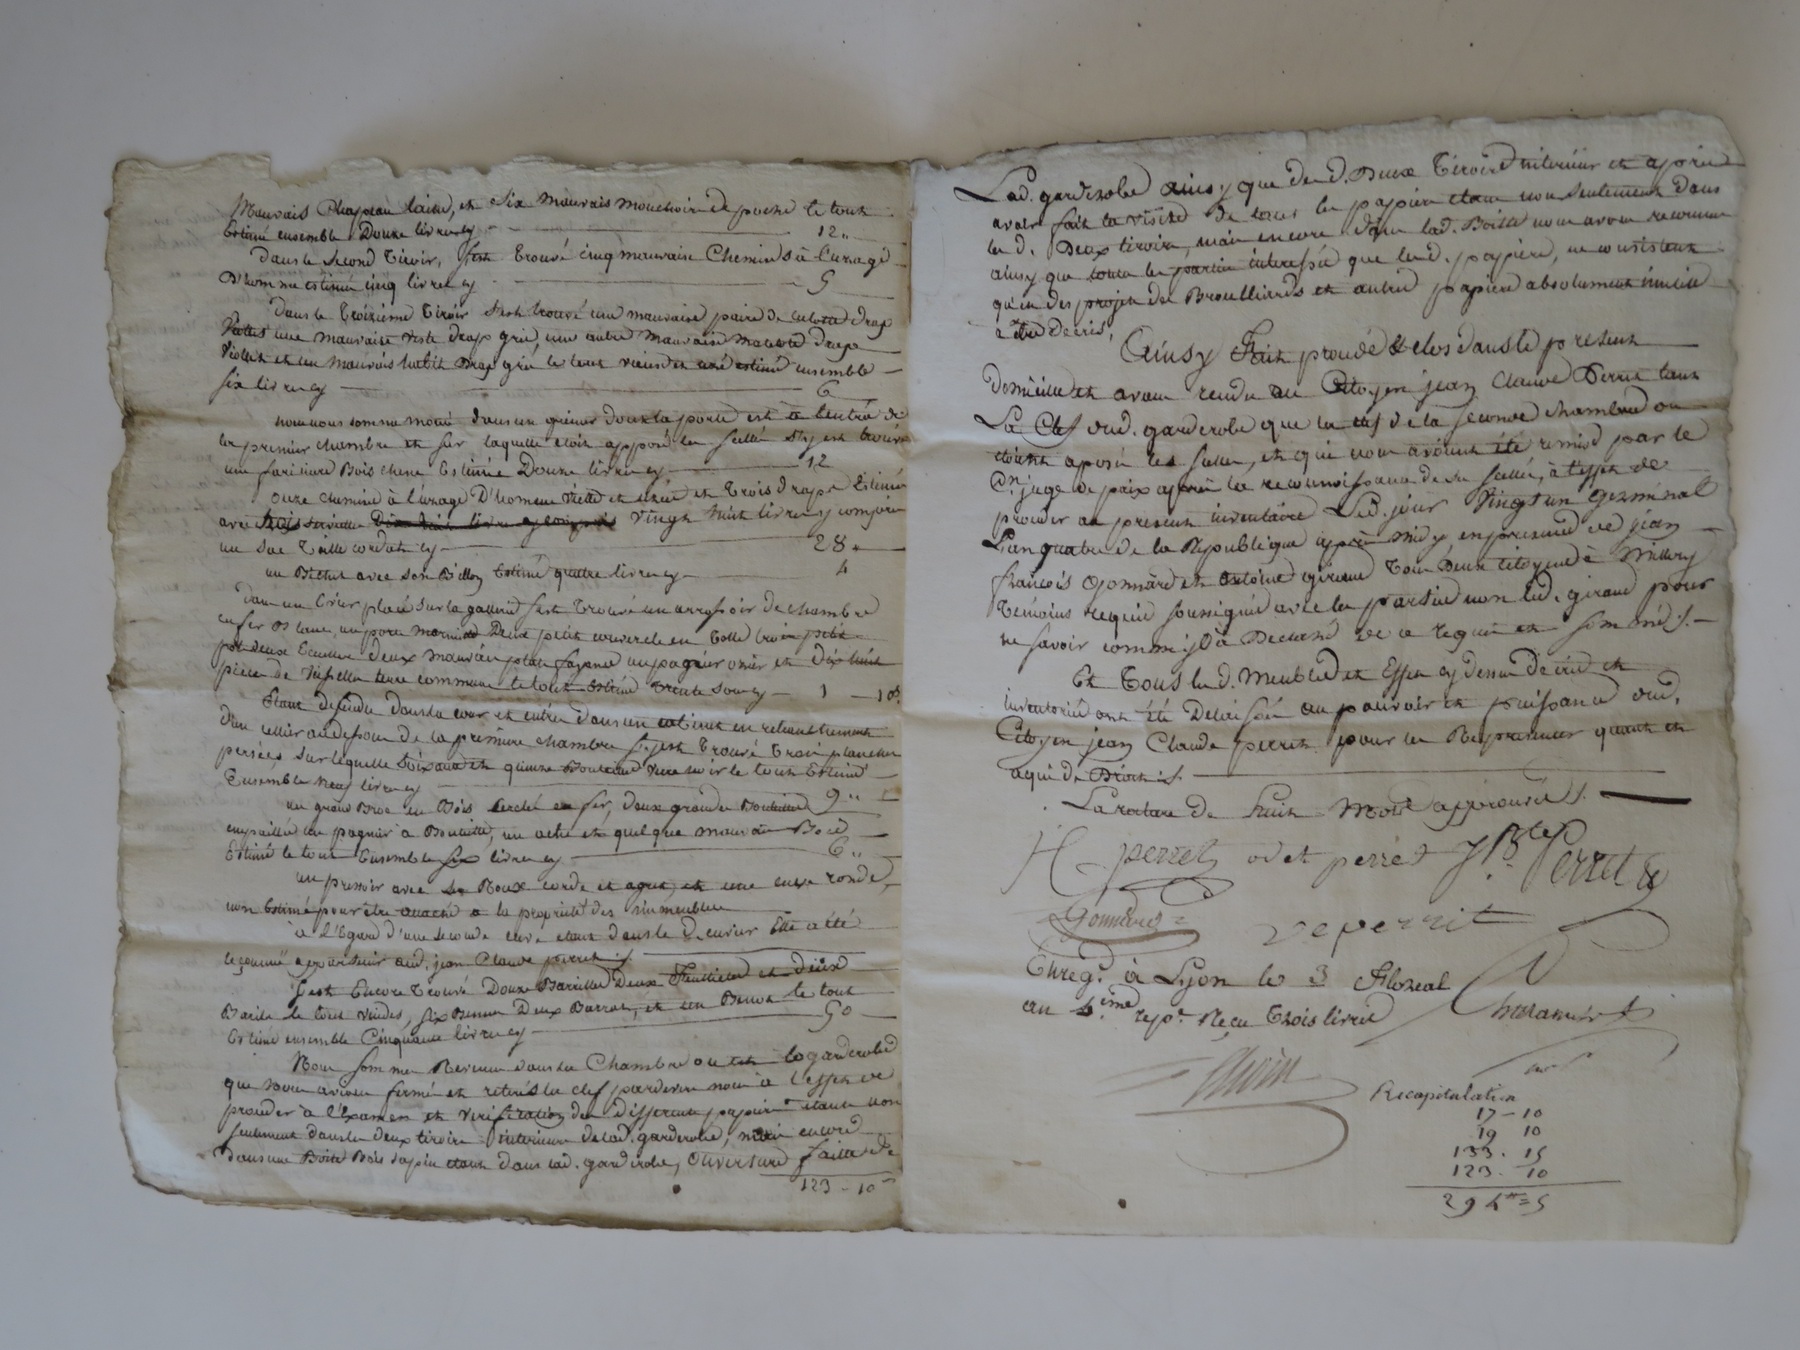 Mauvais Chapeau laine, et Six mauvais mouchoirs de poche le tout
Estimé ensemble Douze livres cy 12 "
Dans le Second Tiroir, s'est trouvé cinq mauvaise Chemises à l'usage
D'homme estimé cinq livres cy 5
Dans le Troizieme Tiroir s'est trouvé une mauvaise paire de culotte drap
une mauvaise veste drap gris, une autre mauvaise drap
violet et un mauvais habit drap gris le tout vieux et uzé estimé ensemble
six livres cy 6
nous nous somme monté dans un grenier dont la porte est à l'entré de
la premier chambre et sur laquelle etoit apposé les scellé s'y est trouvé
une fariniere Bois chene Estimée Douze livres cy 12
onze chemise à l'usage D'homme et Trois draps Estimé
avec vingt huit livres cy compris
un sac Toille cy 28 "
un Bichet avec son Billon Estimé quatre livres cy 4
dans un placé sur la gallerie s'est trouvé un arrosoir de chambre
en fer Blanc, un Deux petit couvercle en Tolle trois petit
pot deux Ecuelle deux mauvais plat un pagnier osier et dix huit
pièce de vesselle terre commune le tout Estimé trente sous cy 1 - 10 s
Etant descendu dans la cour et entré dans un en retranchement
d'un cellier audessous de la première chambre s'y est Trouvé Trois planches
persées sur lesquelle soixante et quinze Bouteille verre noir le tout Estimé
Ensemble neuf livres cy 9 "
un grand Broc en Bois cerclé en fer, deux grande Bouteille
empaillé un pagnier a Bouteille, un et quelque mauvais Bois
Estimé le tout Ensemble six livres cy 6 "
un pressoir avec sa Roue corde et agrets, et une cuve ronde,
non Estimé pour être attaché a la propriété des immeubles
à l'Egard d'une seconde cuve etant dans le d. cuvier Elle a été
reconnue appartenir aud. jean Claude perret /.
s'est Encore Trouvé Douze Barrille Deux Feuillette et deux
Barils le tout vuides, six Bennes Deux Barrat, et un Benon le tout
Estimé ensemble Cinquante livres cy 50
Nous sommes Revenu dans la Chambre ou est la garderobe
que nous avions fermé et retirés la clef pardevers nous à l'effet de
proceder à l'Examen et verification des differents papiers etant non
seulement dans les deux tiroirs interieur de lad. garderobe, mais encore
dans une Boite Bois sapin etant dans lad. garderobe, ouverture faitte de
123 - 10
Lad. garderobe ainsy que des d. Deux Tiroirs interieur et après
avoir fait la visite de tous les papiers etant non seulement dans
les d. Deux tiroirs, mais encore dans lad. Boitte nous avons reconnu
ainsy que toutes les parties interessée que les d. papiers, ne consistent
qu'en des projet des Brouillards et autres papiers absolument inutile
a être decris,
Ainsy Fait procédé & clos dans le present
domicille et avons rendu au Citoyen jean Claude Perret tant
La Clef dud. garderobe que la clef de la seconde chambre ou
étoient aposés les scellés, et qui nous avoient été remise par le
Cn. juge de paix après la reconnoissance de ses scellés, à l'effet de
proceder au present inventaire Led. jour Vingt un Germinal
L'an quatre de la Republique après midy en presence de jean
françois Gonnard et Antoine giraud Tous Deux citoyens à Millery
Temoins requis soussignés avec les parties non led. giraud pour
ne savoir comme il a Declaré de ce requis et sommés /.
Et Tous les d. Meubles et Effets cy dessus décrit et
inventoriés ont été Delaissés au pouvoir et puissance dud.
Citoyen jean Claude perret pour les Representer quant et
a qui de Droit /.
La rature de huit Mots approuvés /.
H perret odet perret J B.te Perret
Gonnard veperrit
Enreg.é à Lyon le 3 floreal
an 4.ieme rep.e Reçu Trois livres
Recapitulation
17 - 10
19 10
133 . 15
123 . 10
294 = 5